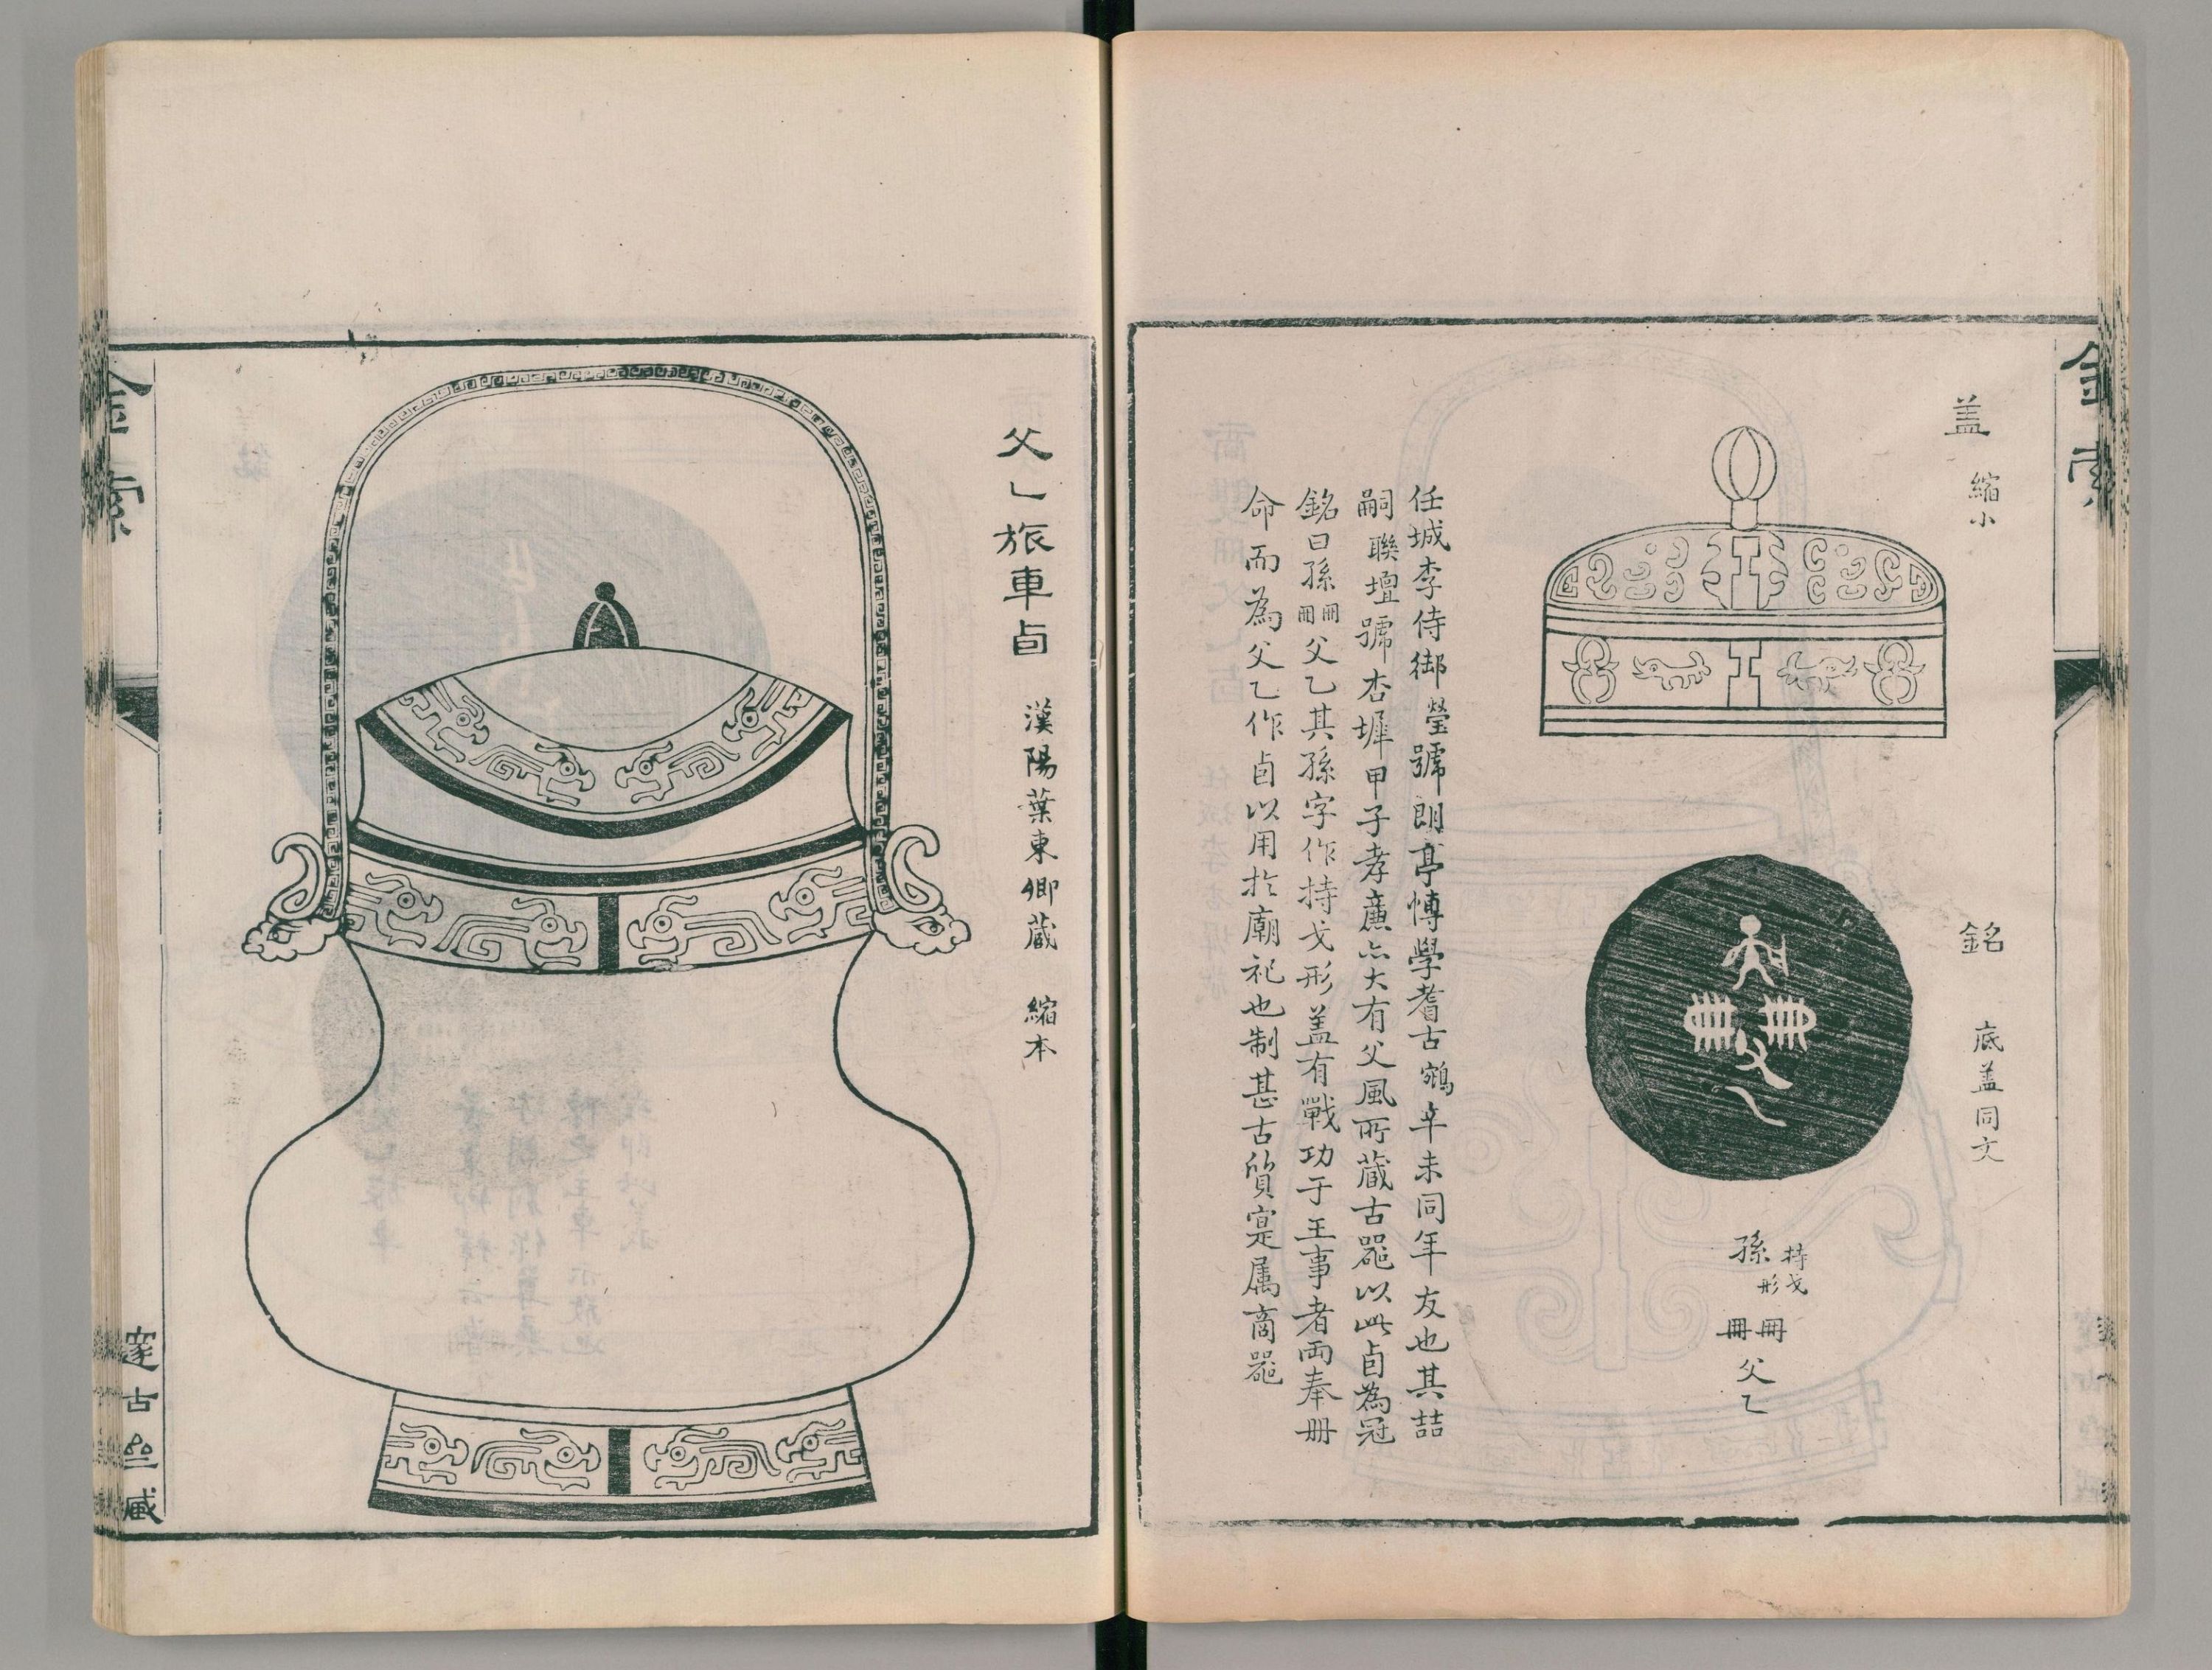 金索
盖 縮小
銘 底盖同文
孫 持戈形
冊冊
父乙
任城李侍御瑩號朗亭博學耆古鵷辛未同年友也其喆
嗣聯壇號杏墀甲子孝廉亦大有父風所藏古器以此卣為冠
銘曰孫冊冊父乙其孫字作持戈形盖有戰功于王事者而奉冊
命而為父乙作卣以用於廟祀也制甚古質寔属商器
父乚旅車卣 漢陽葉東卿藏 縮本
金索
邃古亝藏